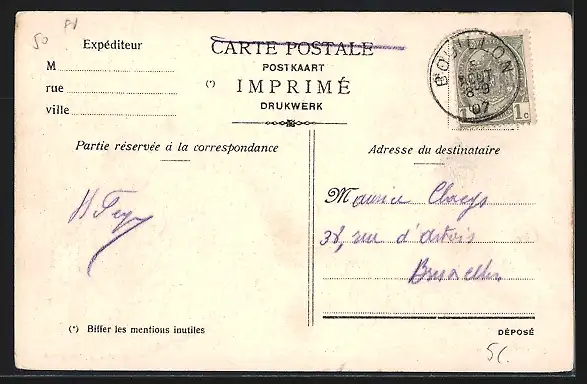 50
Expéditeur
M
rue
ville
CARTE POSTALE
POSTKAART
(*) IMPRIMÉ
DRUKWERK
BOUILLON
5
AOUT
8-9
07
1c
Partie réservée à la correspondance
Adresse du destinataire
Maurice Claeys
38, rue d'Artois
Bruxelles
(*) Biffer les mentions inutiles
DÉPOSÉ